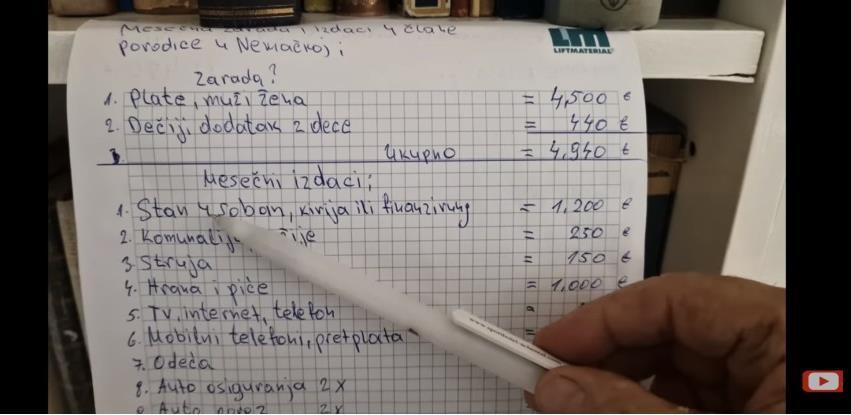 Mesečna zarada i izdaci 4 člane
porodice u Nemačkoj;
LM
LIFTMATERIAL
Zarada?
1. Plate, muž i žena = 4,500 €
2. Dečiji dodatak 2 dece = 440 €
3. Укупно = 4.940 €
Mesečni izdaci;
1. Stan 4 soban, kirija ili finanzirung = 1,200 €
2. = 250 €
3. Struja = 150 €
4. Hrana i piće = 1,000 €
5. TV, internet, telefon =
6. Mobilni telefoni, pretplata =
7. Odeća
8. Auto osiguranja 2x
9. Auto 2x